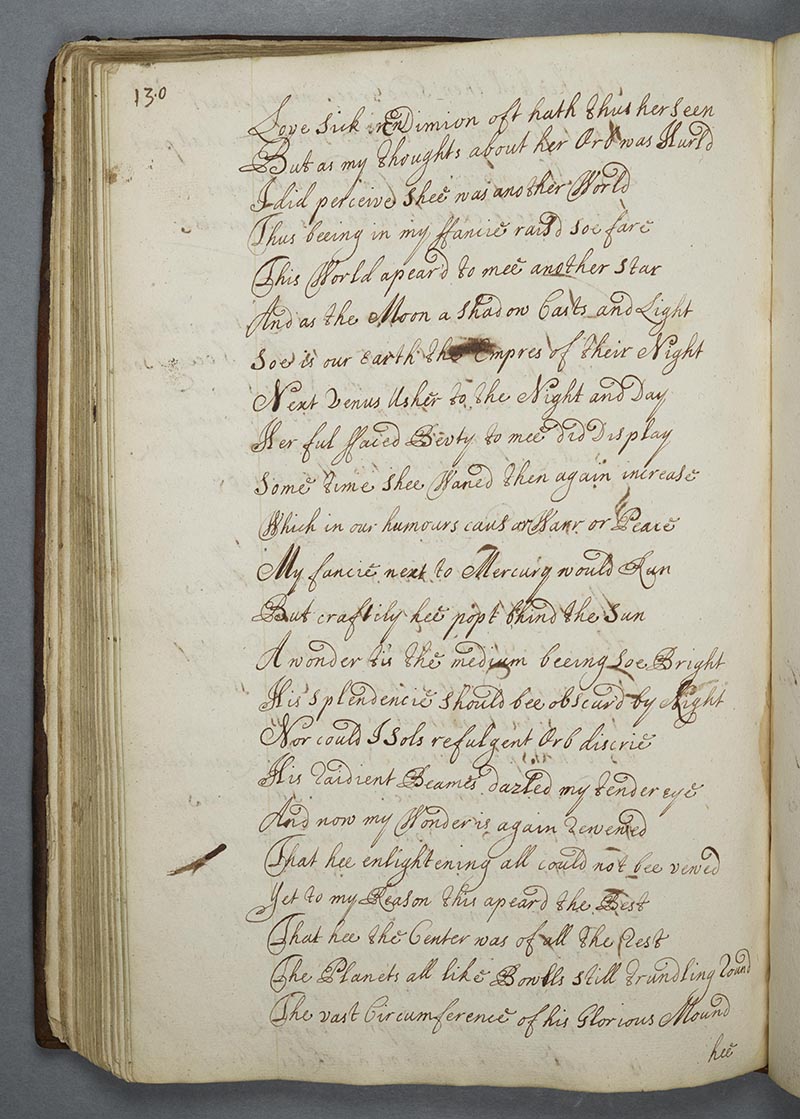 130
Love sick EnDimion oft hath thus her seen
But as my thoughts about her Orb was Hurld
I did perceive shee was another World
Thus beeing in my ffancie raisd soe fare
This World apear'd to mee another star
And as the Moon a shadow Casts and Light
soe is our earth the Empres of their Night
Next Venus Usher to the Night and Day
Her ful ffaced Bevty to mee did Display
some time shee Waned then again increase
Which in our humours caus or Warr or Peace
My fancie next to Mercury would Run
But craftily hee popt bhind the sun
A wonder tis the medium beeing soe Bright
His splendencie should bee obscur'd by Night
Nor could I sols refulgent Orb discrie
His raidient Beames dazled my tender eye
And now my Wonder is again renewed
That hee enlightening all could not bee vewed
Yet to my Reason this apeard the Best
That hee the Center was of all the rest
The Planets all like Bowlls still trundling round
The vast Circumference of his Glorious Mound
hee